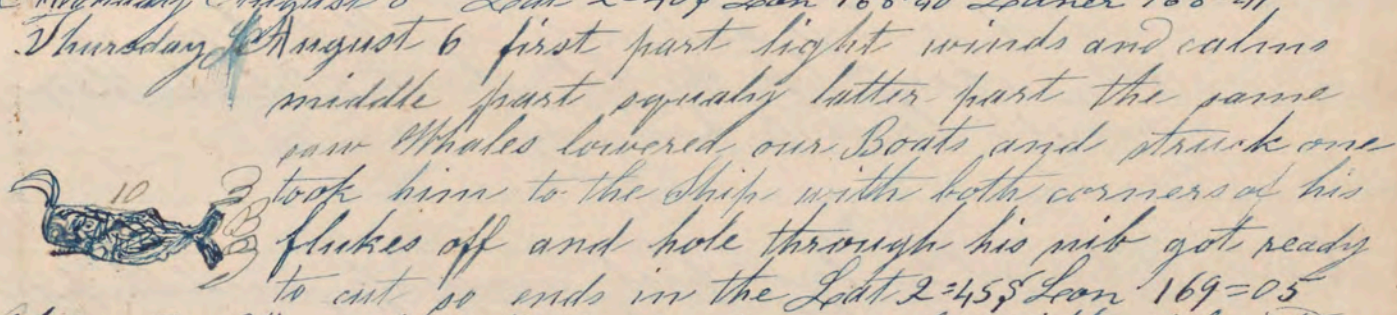 August 6 Lat 2=40S Lon 168
Thursday August 6 first part light winds and calms
middle part squaly latter part the same
saw Whales lowered our Boats and struck one
10
took him to the Ship with both corners of his
flukes off and hole through his nib got ready
to cut so ends in the Lat 2=45S Leon 169=05